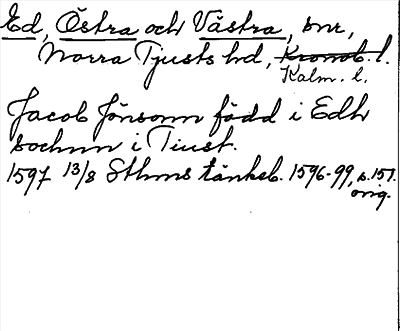 Ed, Östra och Västra, snr,
Norra Tjusts hd, Kronob. l.
Kalm. l.
Jacob Jönsonn född i Edh
sochnn i Tiust.
1597 13/8 Sthms tänkeb. 1596-99, s. 151.
orig.